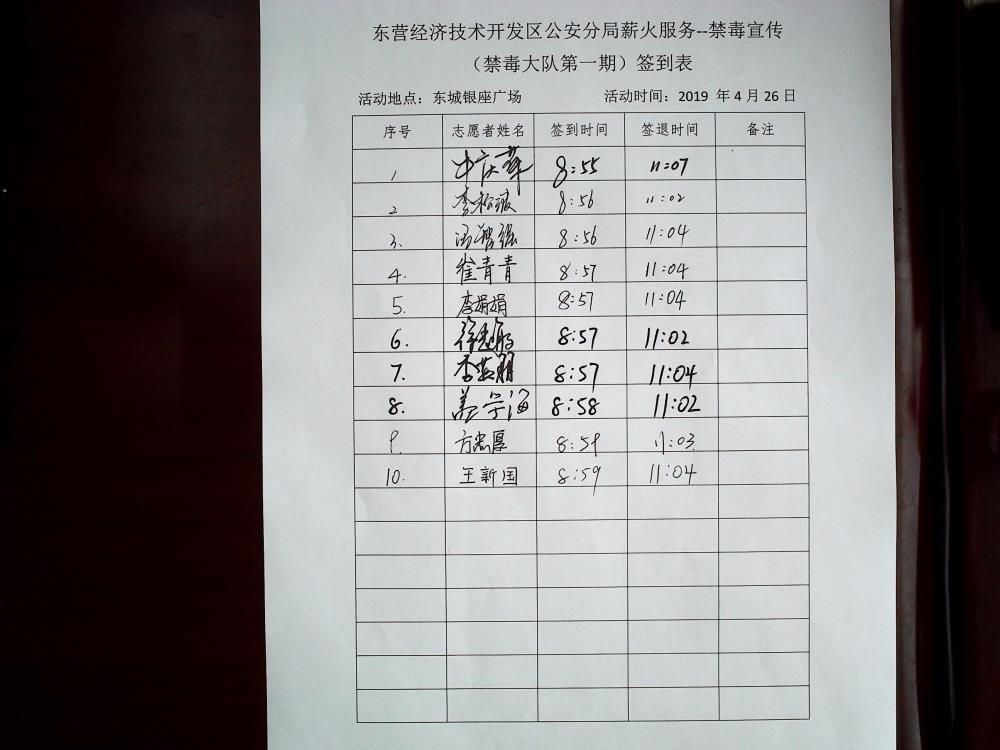 东营经济技术开发区公安分局薪火服务--禁毒宣传
（禁毒大队第一期）签到表
活动地点：东城银座广场 活动时间：2019 年 4 月 26 日
序号 志愿者姓名 签到时间 签退时间 备注
1 8:55 11:07
2 李松波 8:56 11:02
3. 8:56 11:04
4. 崔青青 8:57 11:04
5. 李娟娟 8:57 11:04
6. 8:57 11:02
7. 8:57 11:04
8. 8:58 11:02
9. 方忠厚 8:59 11:03
10. 王新国 8:59 11:04